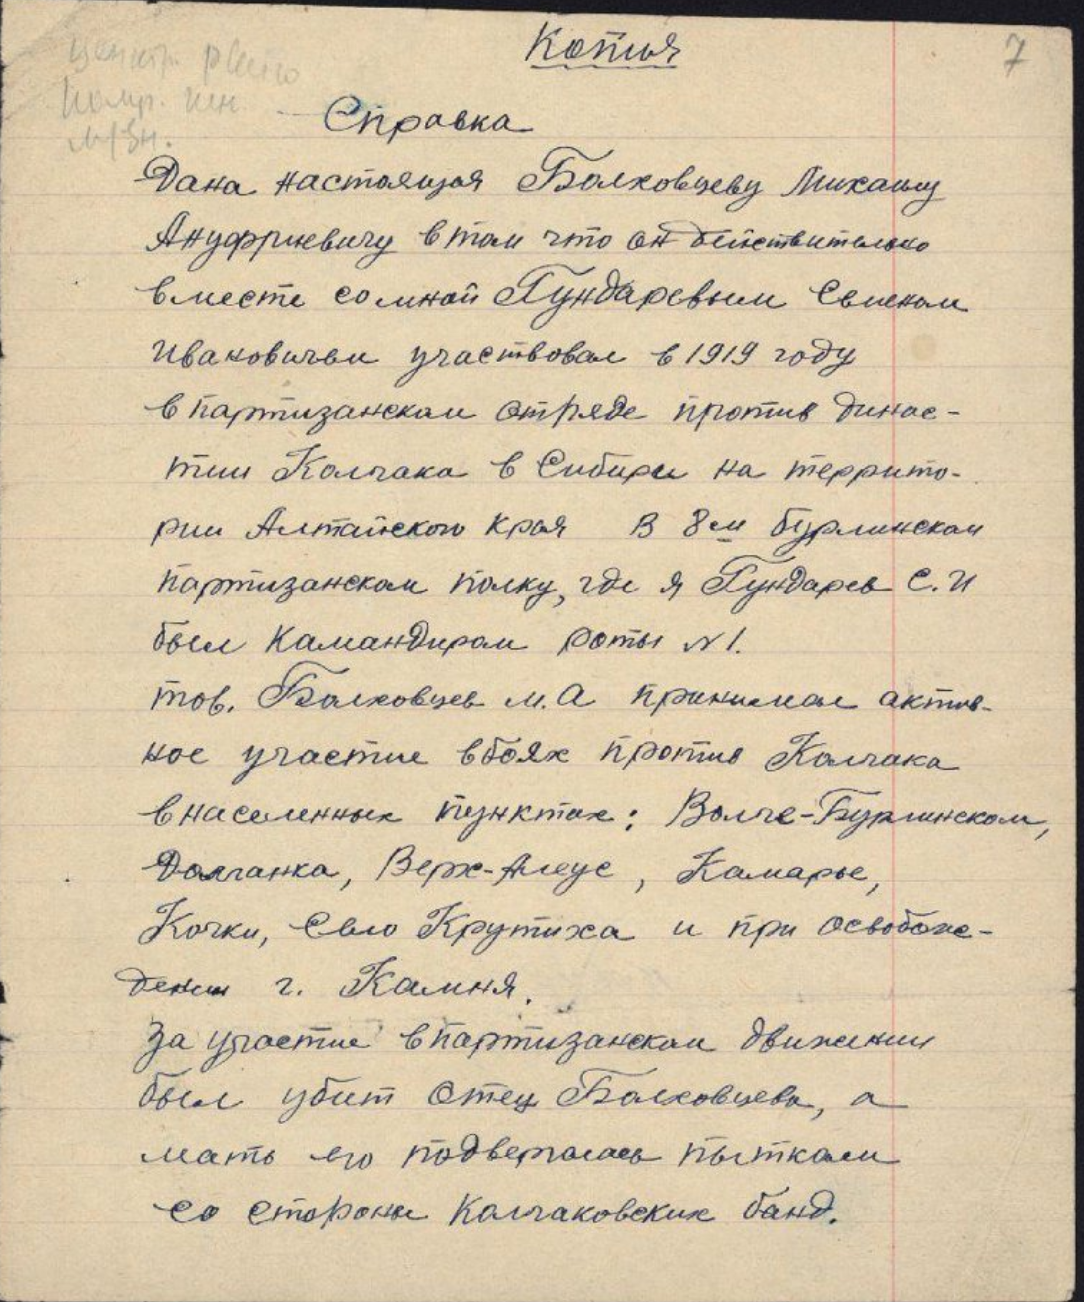 Копия
7
Справка
Дана настоящая Болховцеву Михаилу
Ануфриевичу в том что он действительно
вместе сомной Гундаревым Семеном
Ивановичем участвовал в 1919 году
в партизанском отряде против динас-
тии Колчака в Сибири на террито-
рии Алтайского края В 8м бурлинском
партизанском полку, где я Гундарев С. И
был камандиром роты №1.
тов. Болховцев М. А принимал актив-
ное участие вбоях против Колчака
внаселенных пунктах: Волче-Бурлинском,
Долганка, Верх-Алеус, Камарье,
Кочки, Село Крутиха и при освобож-
дении г. Камня.
За участие впартизанском движении
был убит отец Болховцева, а
мать его подвергалась пыткам
со стороны Колчаковских банд.